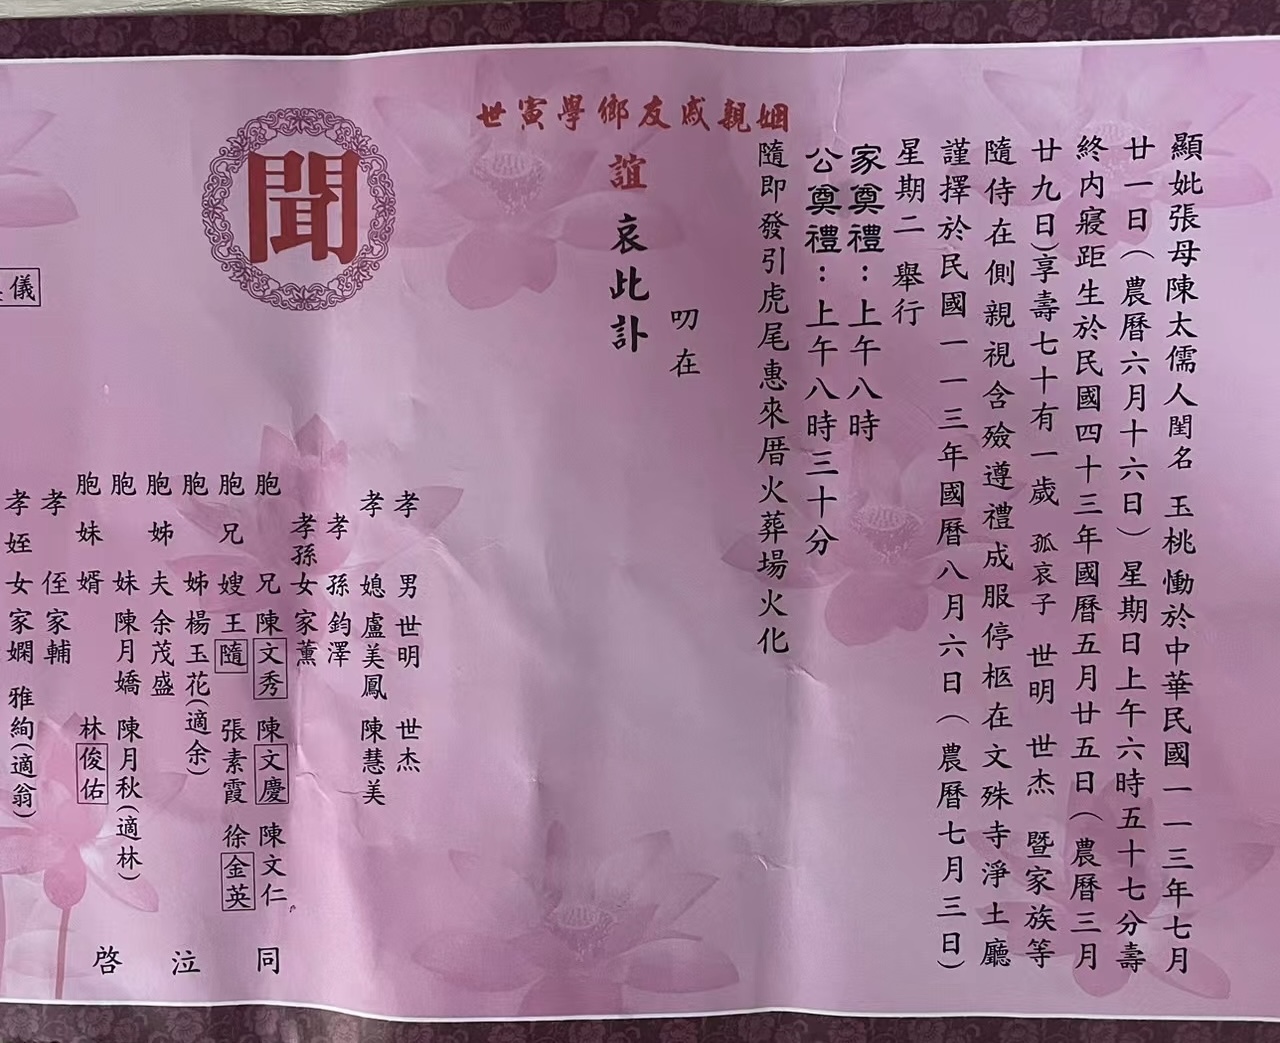 顯妣張母陳太儒人閨名 玉桃 慟於中華民國一一三年七月
廿一日(農曆六月十六日)星期日上午六時五十七分壽
終內寢距生於民國四十三年國曆五月廿五日(農曆三月
廿九日)享壽七十有一歲 孤哀子 世明 世杰 暨家族等
隨侍在側親視含殮遵禮成服停柩在文殊寺淨土廳
謹擇於民國一一三年國曆八月六日(農曆七月三日)
星期二 舉行
家奠禮：上午八時
公奠禮：上午八時三十分
隨即發引虎尾惠來厝火葬場火化
叨在
姻親戚友鄉學寅世
誼 哀此訃
聞
孝 男 世明 世杰
孝 媳 盧美鳳 陳慧美
孝 孫 鈞澤
孝孫女 家薰
胞 兄 陳文秀 陳文慶 陳文仁
胞兄嫂 王隨 張素霞 徐金英
胞 姊 楊玉花(適余)
胞姊夫 余茂盛
胞 妹 陳月嬌 陳月秋(適林)
胞妹婿 林俊佑
孝 侄 家輔
孝姪女 家嫻 雅絢(適翁)
同 泣 啓
儀